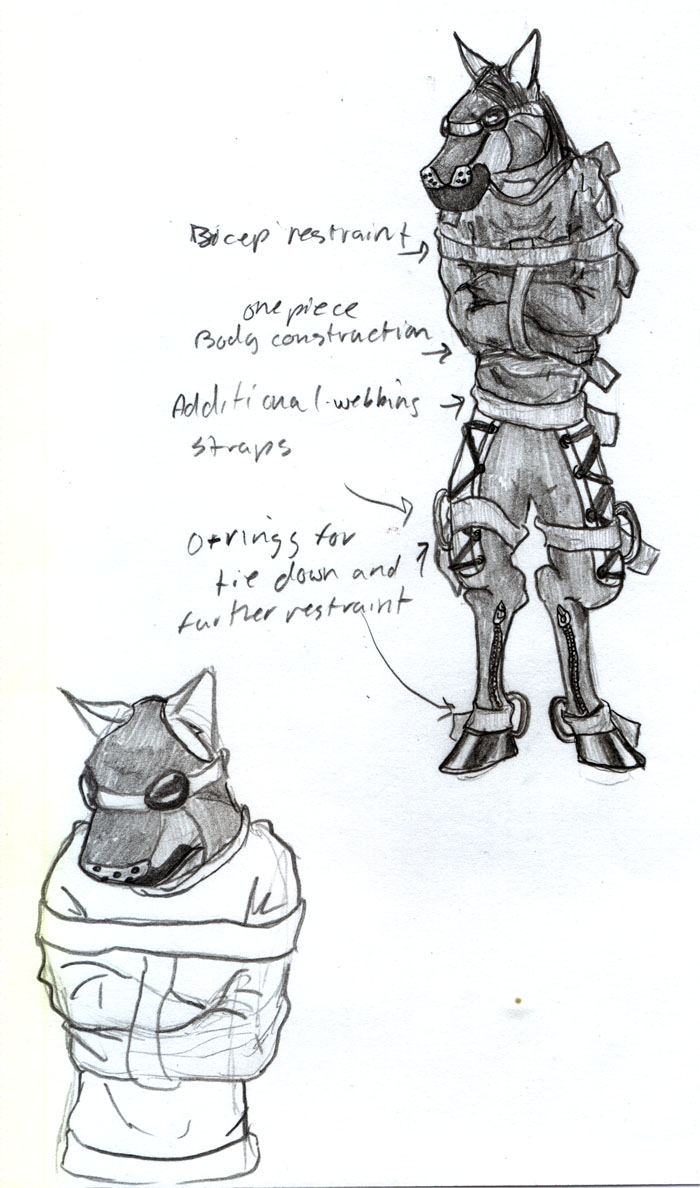 Bicep restraint
one piece
Body construction
Additional webbing
straps
O-rings for
tie down and
further restraint